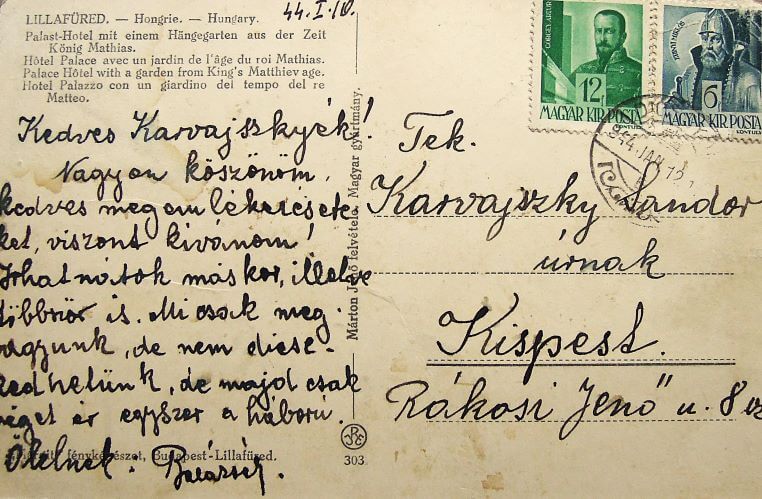 LILLAFÜRED. — Hongrie. — Hungary.
Palast-Hotel mit einem Hängegarten aus der Zeit
König Mathias.
Hôtel Palace avec un jardin de l'âge du roi Mathias.
Palace Hôtel with a garden from King's Matthiev age.
Hotel Palazzo con un giardino del tempo del re
Matteo.
44. I. 10.
Kedves Karvajszkyék!
Nagyon köszönöm
kedves megemlékezésete-
ket, viszont kívánom!
Irhatnátok máskor, illetve
többször is. Mi csak meg-
vagyunk, de nem dicse-
kedhetünk, de majd csak
véget ér egyszer a háború.
Ölelnek:
fényképészet, Budapest-Lillafüred.
Márton Jenő felvétele. Magyar gyártmány.
303
GÖRGEY ARTUR
12
MAGYAR KIR. POSTA
ZRINYI MIKLÓS
6
MAGYAR KIR. POSTA
944 JAN
Tek.
Karvajszky Sándor
úrnak
Kispest.
Rákosi Jenő u. 8